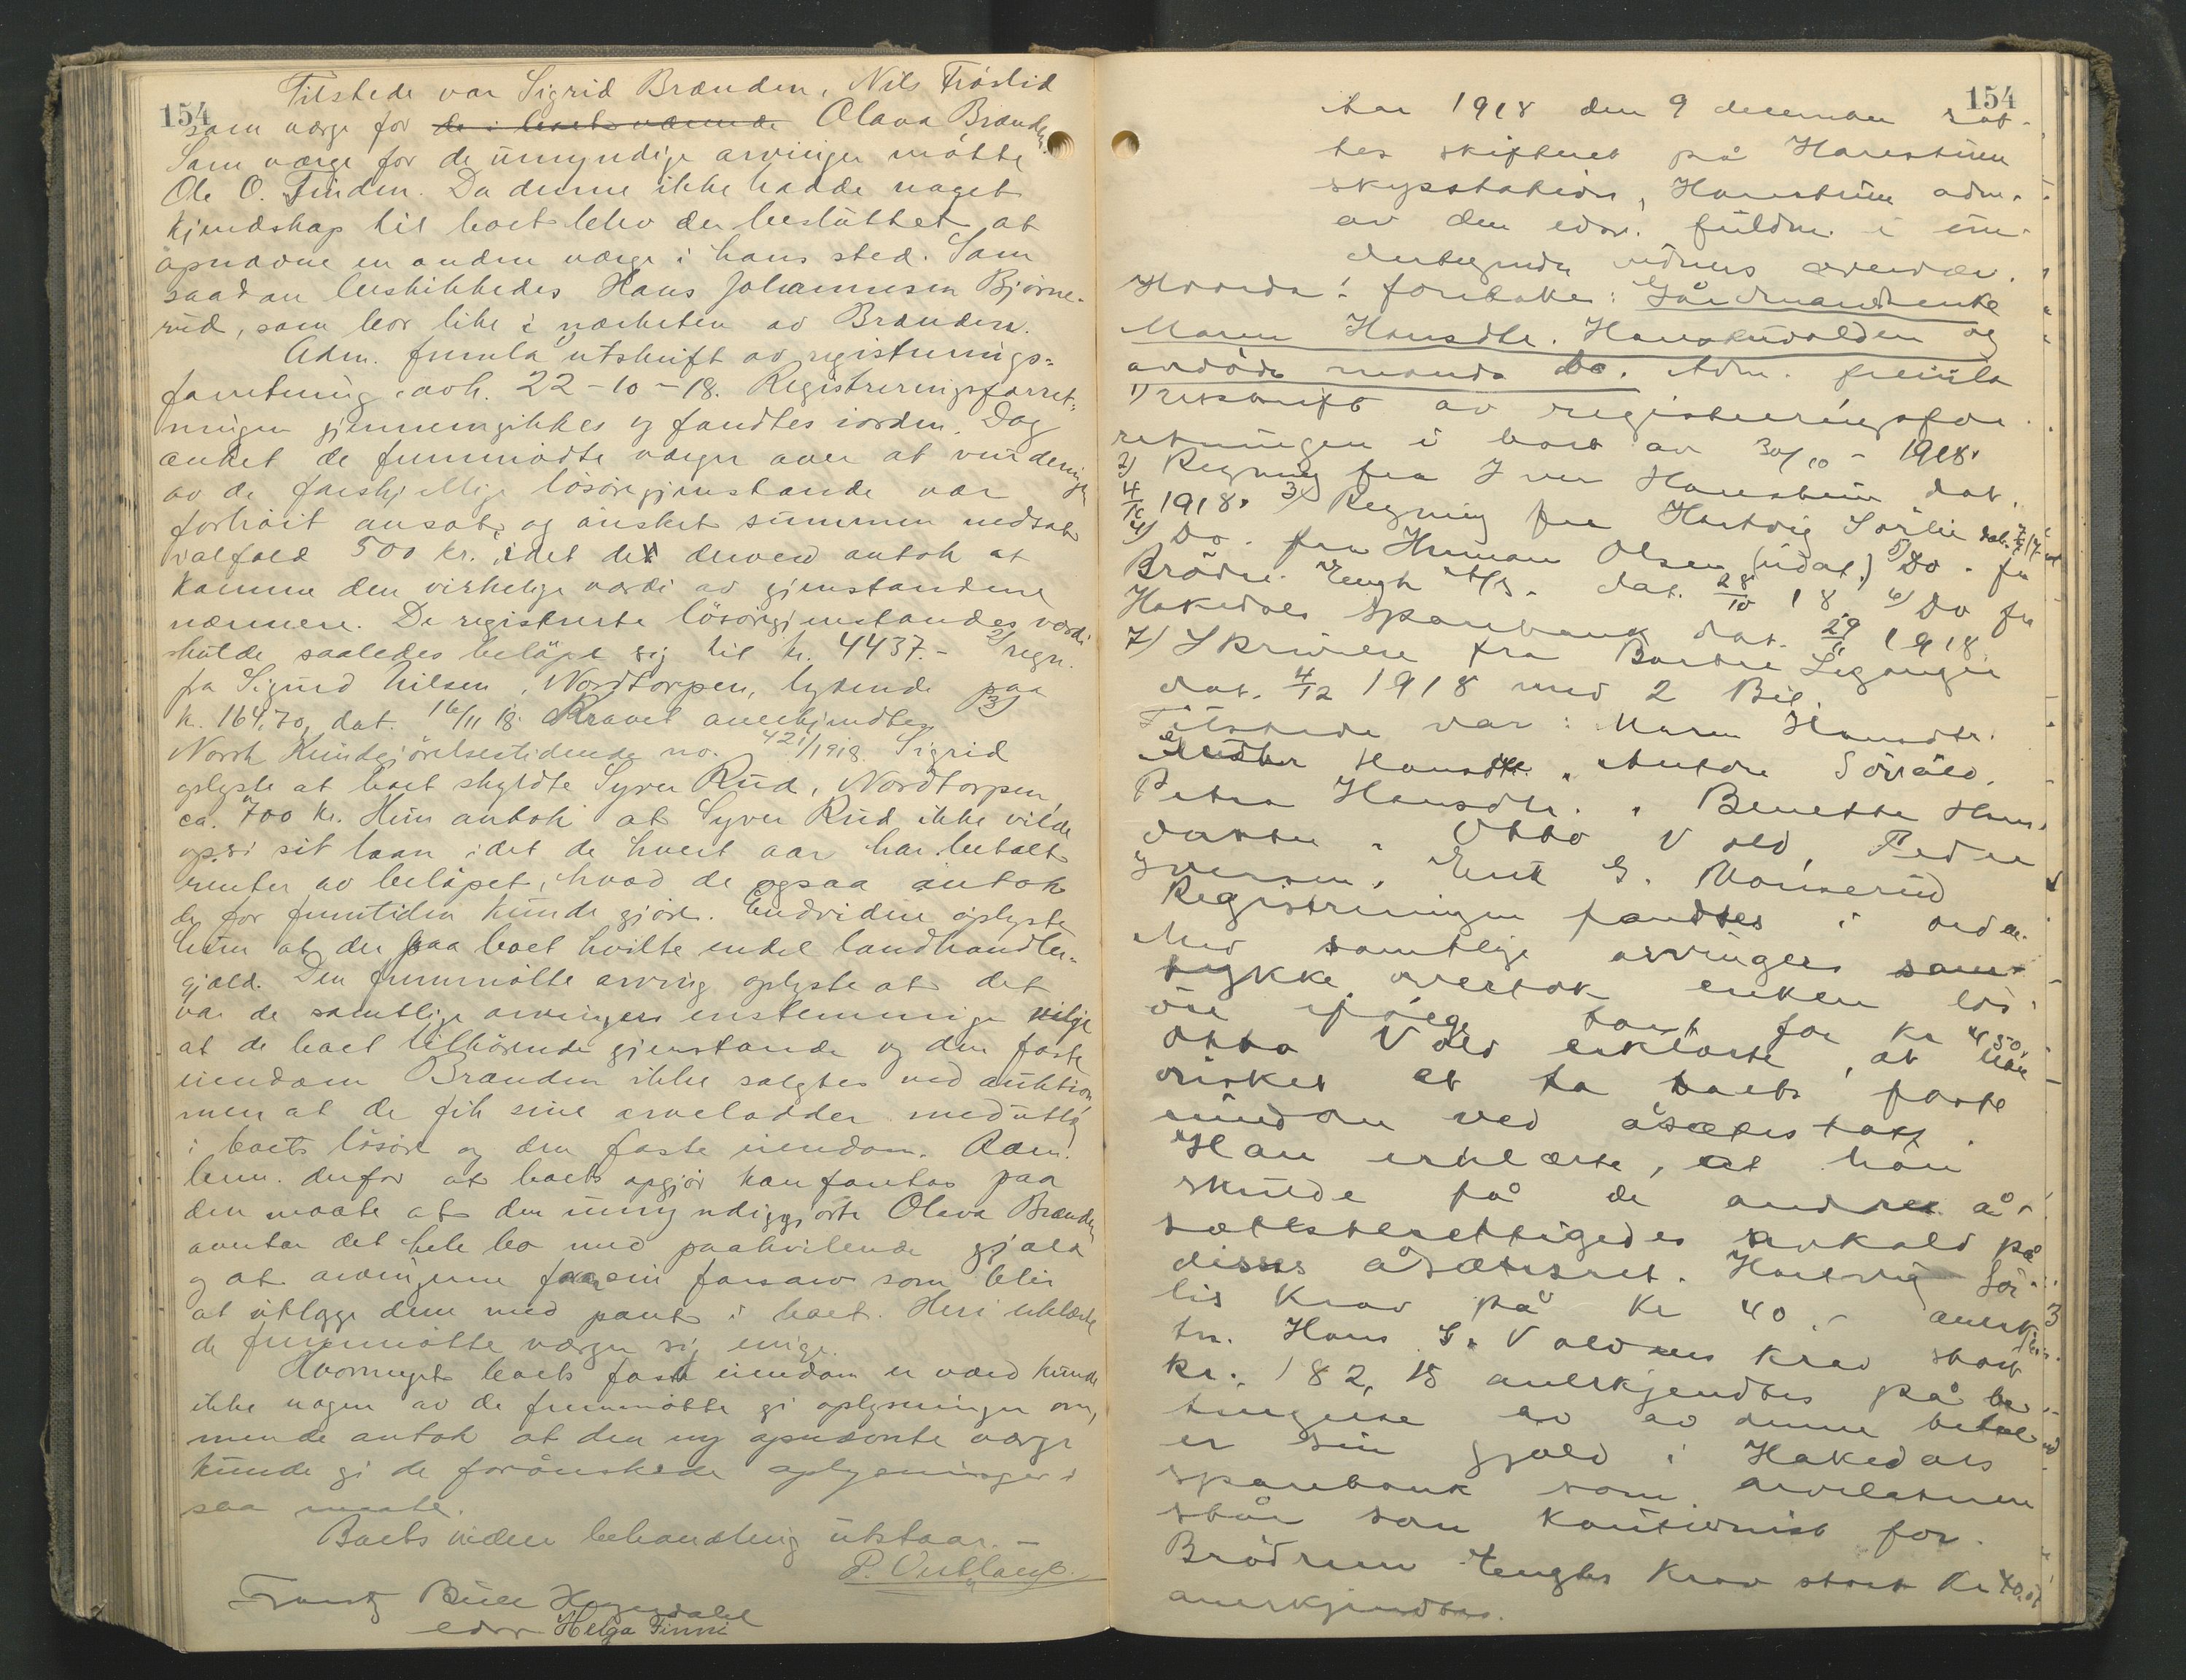 154
Tilstede var Sigrid Brænden, Nils Fröslid
som værge for de i boet værende Olava Brænden.
Som værge for de umyndige arvinger mötte
Ole O. Finden. Da denne ikke hadde noget
kjendskap til boet blev der besluttet at
opnævne en anden værge i hans sted. Som
saadan beskikkedes Hans Johannesen Bjørne-
rud, som bor like i nærheten av Brænden.
Adm. fremla utskrift av registrerings-
forretning avh. 22-10-18. Registreringsforret-
ningen gjennemgikkes og fandtes iorden. Dog
anket de fremmødte værger over at vurderingen
av de forskjellige løsöregjenstande var
forhöit ansat, og ønsket summen nedsat
ialfald 500 kr. idet de derved antok at
komme den virkelige værdi av gjenstandene
nærmere. De registrerte lösöregjenstandes værdi
skulde saaledes belöpe sig til kr. 4437.- 2/ regn.
fra Sigurd Nilsen, Nordtorpen, lydende paa
kr. 164,70, dat. 16/11 18. Kravet anerkjendtes 3)
Norsk Kundgjörelsestidende no. 421/1918. Sigrid
oplyste at boet skyldte Syver Rud, Nordtorpen,
ca. 700 kr. Hun antok at Syver Rud ikke vilde
opsi sit laan idet de hvert aar har betalt
renter av belöpet, hvad de ogsaa antok
de for fremtiden kunde gjöre. Endvidere oplyste
hun at der paa boet hvilte endel landhandler-
gjæld. Den fremmötte arving oplyste at det
var de samtlige arvingers enstemmige vilje
at de boet tilhörende gjenstande og den faste
eiendom Brænden ikke solgtes ved auktion
men at de fik sine arvelodder med utlæg
i boets lösöre og den faste eiendom. Adm.
bem. derfor at boets opgjör kan foretas paa
den maate at den umyndiggjorte Olava Brænden
overtar det hele bo med paahvilende gjæld
og at arvingerne faar sin farsarv som blir
at utlegge dem med pant i boet. Heri erklærte
de fremmötte værger sig enige.
Hvormeget boets faste eiendom er værd kunde
ikke nogen av de fremmötte gi oplysninger om,
mende antok at den ny opnævnte værge
kunde gi de forönskede oplysninger i
saa maate.
Boets videre behandling utstaar. –
P. Østlang.
Frantz Bull Heyerdahl
edsv. Helga Finni
154
Aar 1918 den 9 december sat-
tes skifteret på Harestuen
skysstation, Harestuen adm.
av den edsv. fuldm. i un-
dertegnede vidners overvær.
Hvorda: foretokes: Gårdmandsenke
Maren Hansdtr. Haneknævolden og
avdöde mands bo. Adm. fremla
1) Utskrift av registreringsfor-
retningen i boet av 30/10 - 1918.
2) Regning fra Iver Harestuen dat.
4/12 1918. 3) Regning fra Hartvig Sörlie dat.
4) Do. fra Herman Olsen (udat.) 5) Do. fra
Brödr. Tengs A/S. dat. 28/10 18 6) Do fra
Hakedals Sparebank dat. 29/11 1918
7) Skrivelse fra Bertre Leganger
dat. 4/12 1918 med 2 Bil.
Tilstede var: Maren Hansdtr.
Hansdtr., Anton Sörvold,
Petra Hansdtr., Benette Hans-
datter, Otto Vold, Peder
Iversen, Emil G. Monserud
Registreringen fandtes i orden.
Med samtlige arvingers sam-
tykke overtok enken lös-
öre iflg. takst for kr 450.
Otto Vold erklærte, at han
önsket at ta boets faste
eiendom ved åsætestakst.
Han erklærte, at han
skulde få de andre å-
sætesberettigedes avkald på
disses åsætesret. Hartvig Sör-
lis krav på kr 40.- anerkjend-
tes. Hans G. Voldens krav stort
kr. 182,15 anerkjendtes på be-
tingelse av at denne betal-
er sin gjæld i Hakedals
sparebank som arvelateren
står som kautionist for.
Brödrene Tengs krav stort kr 40,01
anerkjendtes.